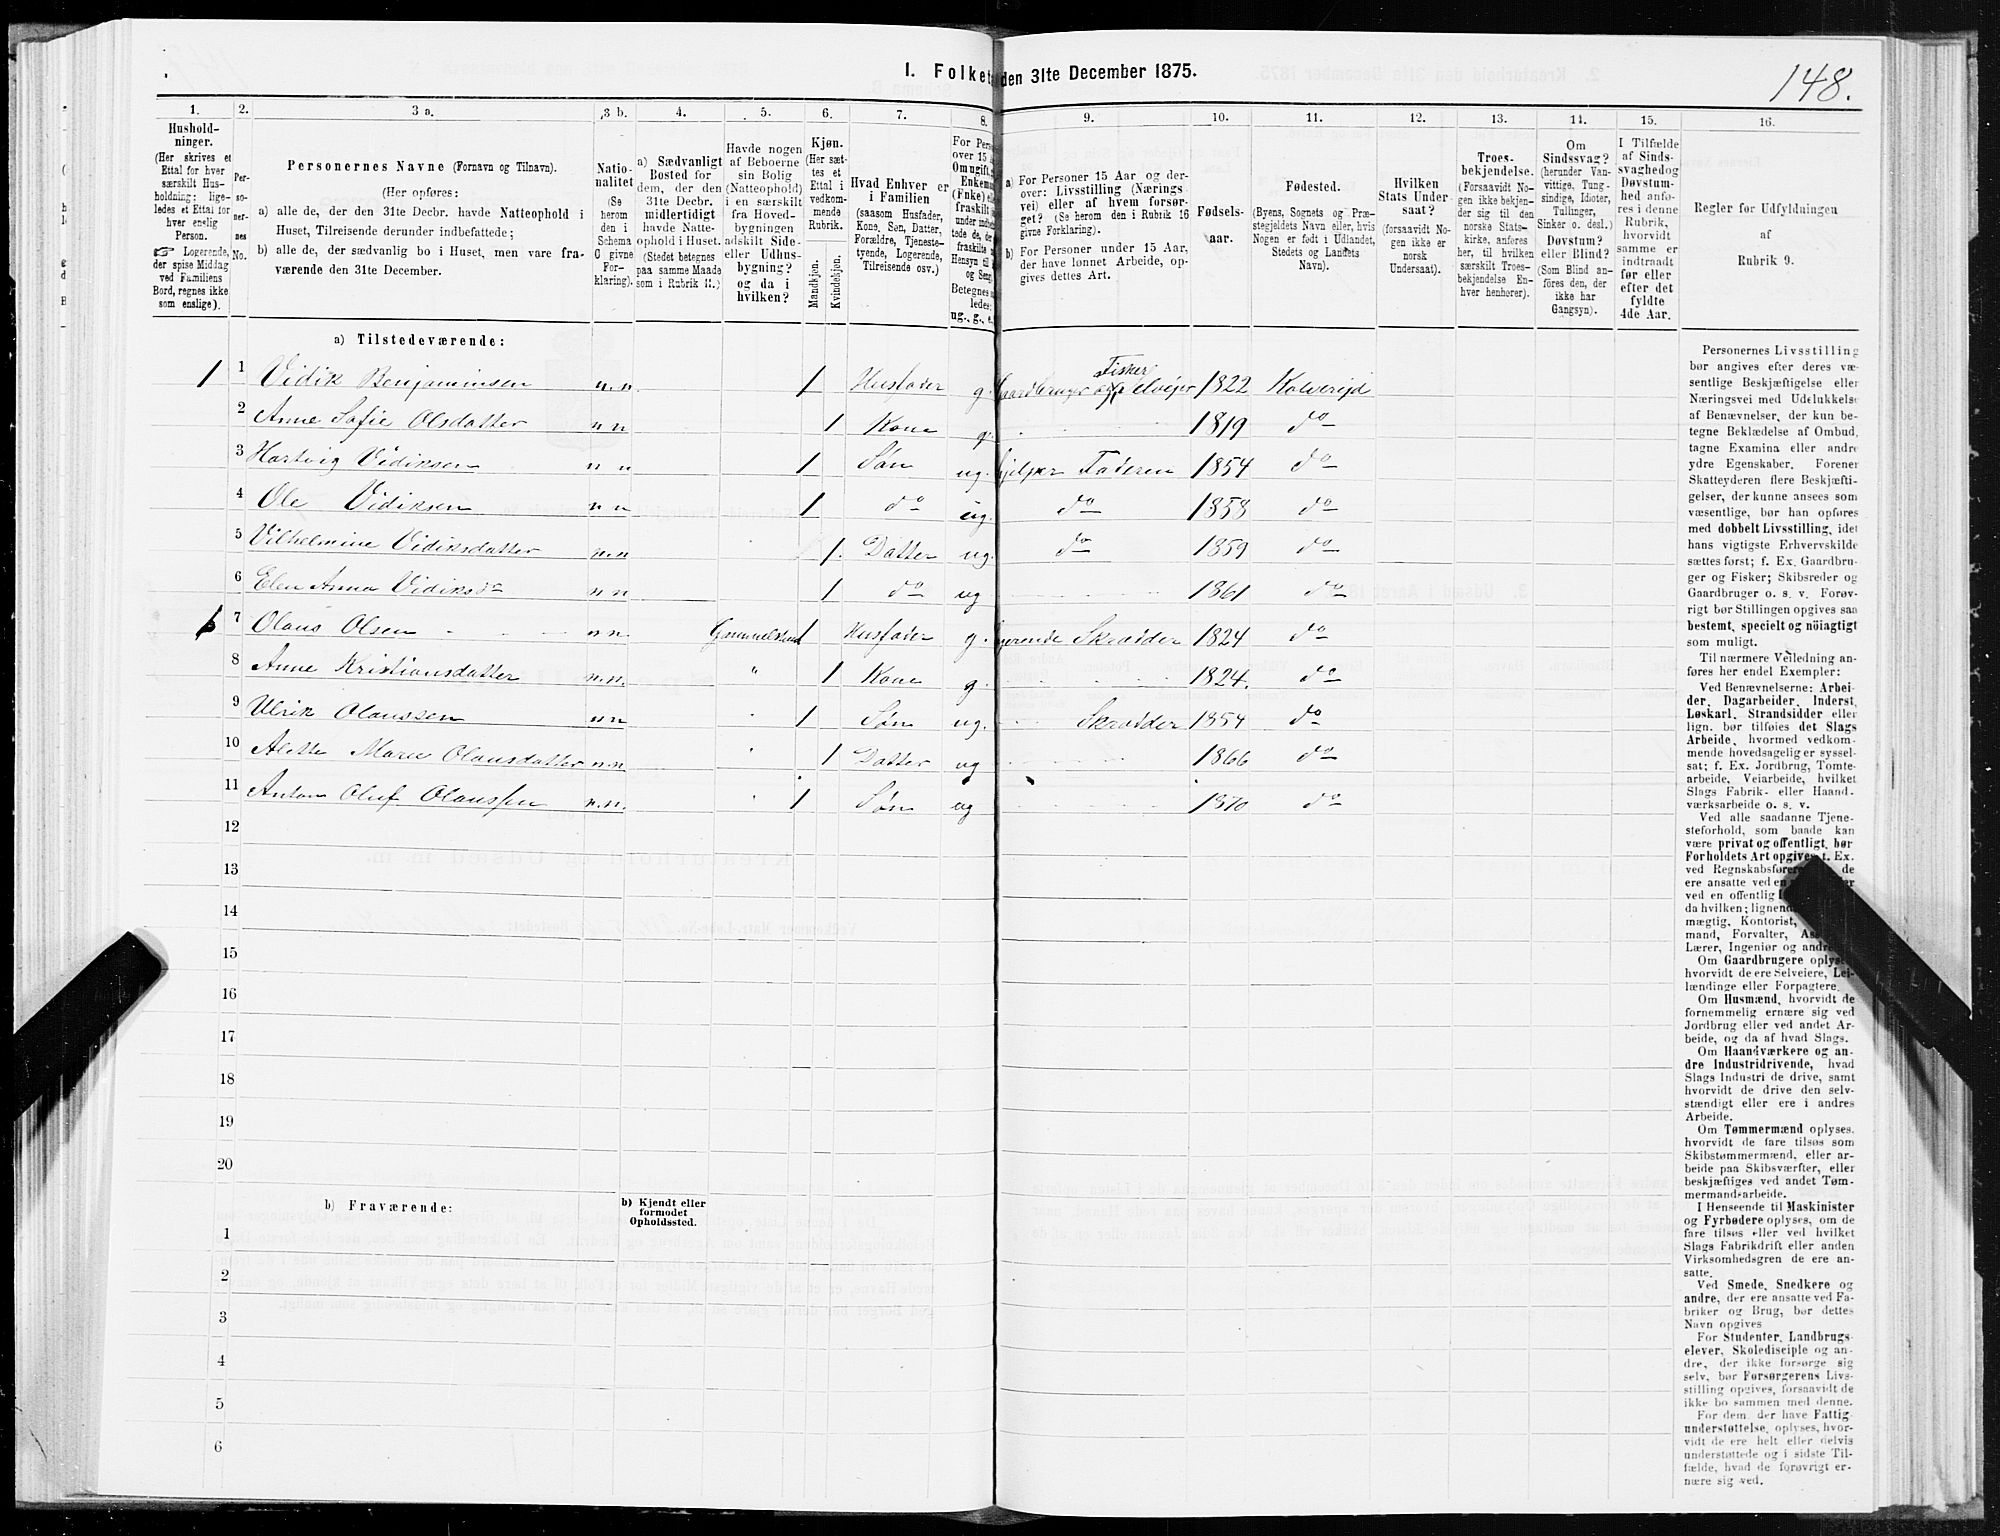 148.
I. Folket den 31te December 1875.
1. 2. 3 a. 3 b. 4. 5. 6. 7. 8. 9. 10. 11. 12. 13. 14. 15. 16.
Hushold-
ninger.
(Her skrives et
Ettal for hver
særskilt Hus-
holdning; lige-
ledes et Ettal for
hver enslig
Person.
Logerende,
der spise Middag
ved Familiens
Bord, regnes ikke
som enslige).
Per-
so-
ner-
nes
No.
Personernes Navne (Fornavn og Tilnavn).
(Her opføres:
a) alle de, der den 31te Decbr. havde Natteophold i
Huset, Tilreisende derunder indbefattede;
b) alle de, der sædvanlig bo i Huset, men vare fra-
værende den 31te December.
Natio-
nalitet
(Se
herom
den i
Schema
C givne
For-
klaring).
a) Sædvanligt
Bosted for
dem, der den
31te Decbr.
midlertidigt
havde Natte-
ophold i Huset.
(Stedet betegnes
paa samme Maade
som i Rubrik 11.)
Havde nogen
af Beboerne
sin Bolig
(Natteophold)
i en særskilt
fra Hoved-
bygningen
adskilt Side-
eller Udhus-
bygning?
og da i
hvilken?
Kjøn.
(Her sæt-
tes et
Ettal i
vedkom-
mende
Rubrik.
Mandkjøn.
Kvindekjøn.
Hvad Enhver er
i Familien
(saasom Husfader,
Kone, Søn, Datter,
Forældre, Tjeneste-
tyende, Logerende,
Tilreisende osv.)
For Pers
over 15 A
Om ugift, g
Enkem
(Enke) ell
fraskilt
Betegnes
ledes:
ug., g., e.
a) For Personer 15 Aar og der-
over: Livsstilling (Nærings-
vei) eller af hvem forsør-
get? (Se herom den i Rubrik 16
givne Forklaring).
b) For Personer under 15 Aar,
der have lønnet Arbeide, op-
gives dettes Art.
Fødsels-
aar.
Fødested.
(Byens, Sognets og Præ-
stegjeldets Navn eller, hvis
Nogen er født i Udlandet,
Stedets og Landets
Navn).
Hvilken
Stats Under-
saat?
(forsaavidt No-
gen ikke er
norsk
Undersaat).
Troes-
bekjendelse.
(Forsaavidt No-
gen ikke bekjen-
der sig til den
norske Stats-
kirke, anføres
her, til hvilken
særskilt Troes-
bekjendelse En-
hver henhører).
Om
Sindssvag?
(herunder Van-
vittige, Tung-
sindige, Idioter,
Tullinger,
Sinker o. desl.)
Døvstum?
eller Blind?
(Som Blind an-
føres den, der
ikke har
Gangsyn).
I Tilfælde
af Sinds-
svaghed og
Døvstum-
hed anfø-
res i denne
Rubrik,
hvorvidt
samme er
indtraadt
før eller
efter det
fyldte
4de Aar.
Regler for Udfyldningen
af
Rubrik 9.
a) Tilstedeværende:
1 1 Vidik Benjaminsen n.n 1 Husfader g. Gaardbruger og Fisker Selveier 1822 Kolvereid
2 Anne Sofie Olsdatter n n 1 Kone g. 1819 do
3 Hartvig Vidiksen n n 1 Søn ug. Hjelper Faderen 1854 do
4 Ole Vidiksen n n 1 do ug. do 1858 do
5 Vilhelmine Vidiksdatter n.n 1. Datter ug. do 1859 do
6 Elen Anna Vidiksdr n n 1 do ug 1861 do
7 Olaus Olsen n n. 1 Husfader g. Skrædder 1824 do
8 Anne Kristiansdatter n.n. " 1 Kone g. 1824. do
9 Ulrik Olaussen n n " 1 Søn ug. Skrædder 1854 do
10 Alette Marie Olausdatter n.n " 1 Datter ug 1866 do
11 Anton Oluf Olaussen n.n. " 1 Søn ug 1870 do
12
13
14
15
16
17
18
19
20
b) Fraværende:
b) Kjendt eller
formodet
Opholdssted.
1
2
3
4
5
6
Personernes Livsstilling
bør angives efter deres væ-
sentlige Beskjæftigelse eller
Næringsvei med Udelukkelse
af Benævnelser, der kun be-
tegne Beklædelse af Ombud,
tagne Examina eller andre
ydre Egenskaber. Forener
Skatteyderen flere Beskjæfti-
gelser, der kunne ansees som
væsentlige, bør han opføres
med dobbelt Livsstilling, idet
hans vigtigste Erhvervskilde
sættes først; f. Ex. Gaardbru-
ger og Fisker; Skibsreder og
Gaardbruger o. s. v. Forøv-
rigt bør Stillingen opgives saa
bestemt, specielt og nöiagtigt
som muligt.
Til nærmere Veiledning an-
føres her endel Exempler:
Ved Benævnelserne: Arbei-
der, Dagarbeider, Inderst,
Løskarl, Strandsidder eller
lign. bør tilføies det Slags
Arbeide, hvormed vedkom-
mende hovedsagelig er syssel-
sat; f. Ex. Jordbrug, Tomte-
arbeide, Veiarbeide, hvilket
Slags Fabrik- eller Haand-
værksarbeide o. s. v.
Ved alle saadanne Tjene-
steforhold, som baade kan
være privat og offentligt, bør
Forholdets Art opgives, f. Ex.
ved Regnskabsfører de
ere ansatte ved en
ved en offentlig
da hvilken; lignende
mægtig, Kontorist,
mand, Forvalter, As
Lærer, Ingeniør og andre.
Om Gaardbrugere oplyses,
hvorvidt de ere Selveiere, Lei-
lændinge eller Forpagtere.
Om Husmænd, hvorvidt de
fornemmelig ernære sig ved
Jordbrug eller ved andet Ar-
beide, og da af hvad Slags.
Om Haandværkere og an-
dre Industridrivende, hvad
Slags Industri de drive, samt
hvorvidt de drive den selv-
stændigt eller ere i andres
Arbeide.
Om Tømmermænd oplyses,
hvorvidt de fare tilsøs som
Skibstømmermænd, eller ar-
beide paa Skibsværfter, eller
beskjæftiges ved andet Tøm-
mermandsarbeide.
I Henseende til Maskinister
og Fyrbødere oplyses, om de
fare tilsøs eller ved hvilket
Slags Fabrikdrift eller anden
Virksomhedsgren de ere an-
satte.
Ved Smede, Snedkere og
andre, der ere ansatte ved Fa-
briker og Brug, bør dettes
Navn opgives
For Studenter, Landbrugs-
elever, Skoledisciple og an-
dre, der ikke forsørge sig
selv, bør Forsørgerens Livs-
stilling opgives, forsaavidt de
ikke bo sammen med denne.
For dem, der have Fattig-
understøttelse, oplyses, hvor-
vidt de ere helt eller delvis
understøttede og i sidste Til-
fælde, hvad de forøvrigt er-
nære sig ved.